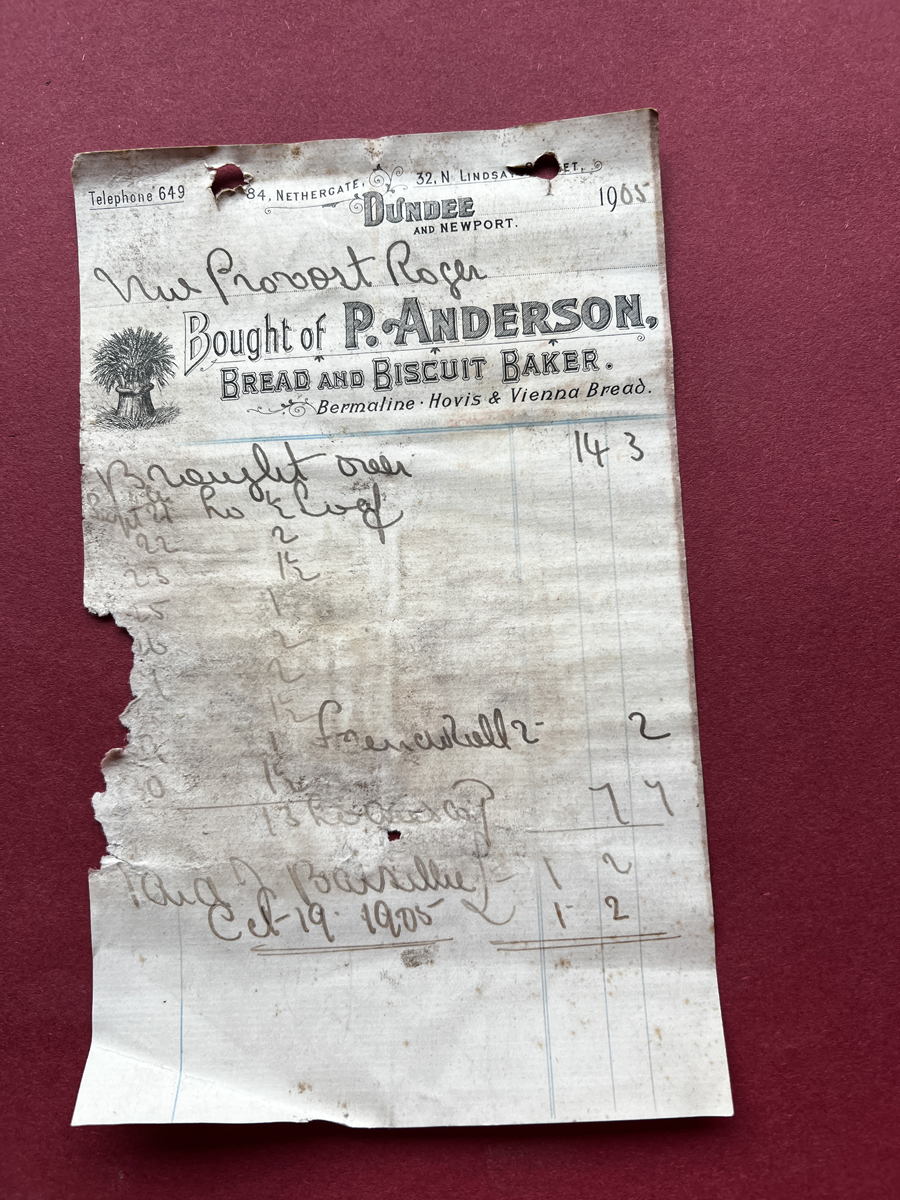 Telephone 649
84, NETHERGATE,
32, N LINDSAY
DUNDEE
AND NEWPORT.
1905
Provost Roger
Bought of P. ANDERSON,
BREAD AND BISCUIT BAKER.
Bermaline · Hovis & Vienna Bread.
Brought over 14 3
Sept 21 ½ loaf
22 2
23 1½
25 1
26 2
2
1½
1 2
30 1½
13 7 7
1 2
Oct 19 1905 1 2